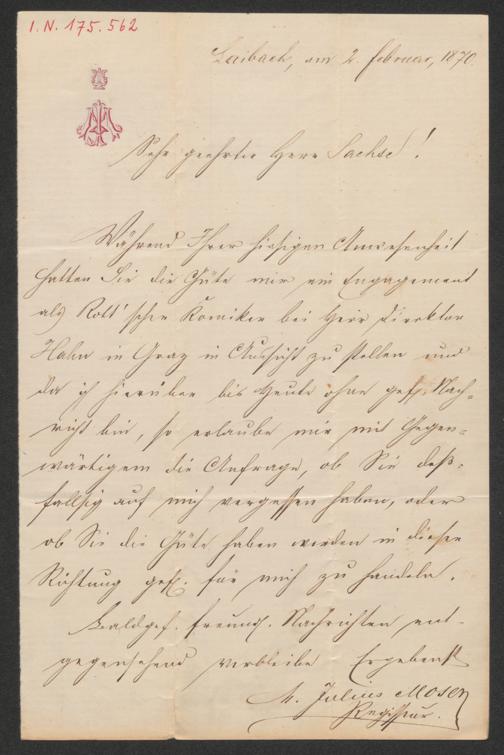 I.N. 175.562
Laibach, am 2. Februar, 1870.
Sehr geehrter Herr Sachse!
Während Ihrer hiesigen Anwesenheit
hatten Sie die Güte mir ein Engagement
als Rott'scher Komiker bei Herr Direktor
in Graz in Aussicht zu stellen und
da ich hierüber bis heute ohne gef. Nach-
richt bin, so erlaube mir mit Gegen-
wärtigem die Anfrage, ob Sie deß-
fallsig auf mich vergessen haben, oder
ob Sie die Güte haben werden in dieser
Richtung gef. für mich zu handeln.
Baldgef. freundl. Nachrichten ent-
gegensehend verbleibe Ergebenst
Julius Moser
Regisseur.